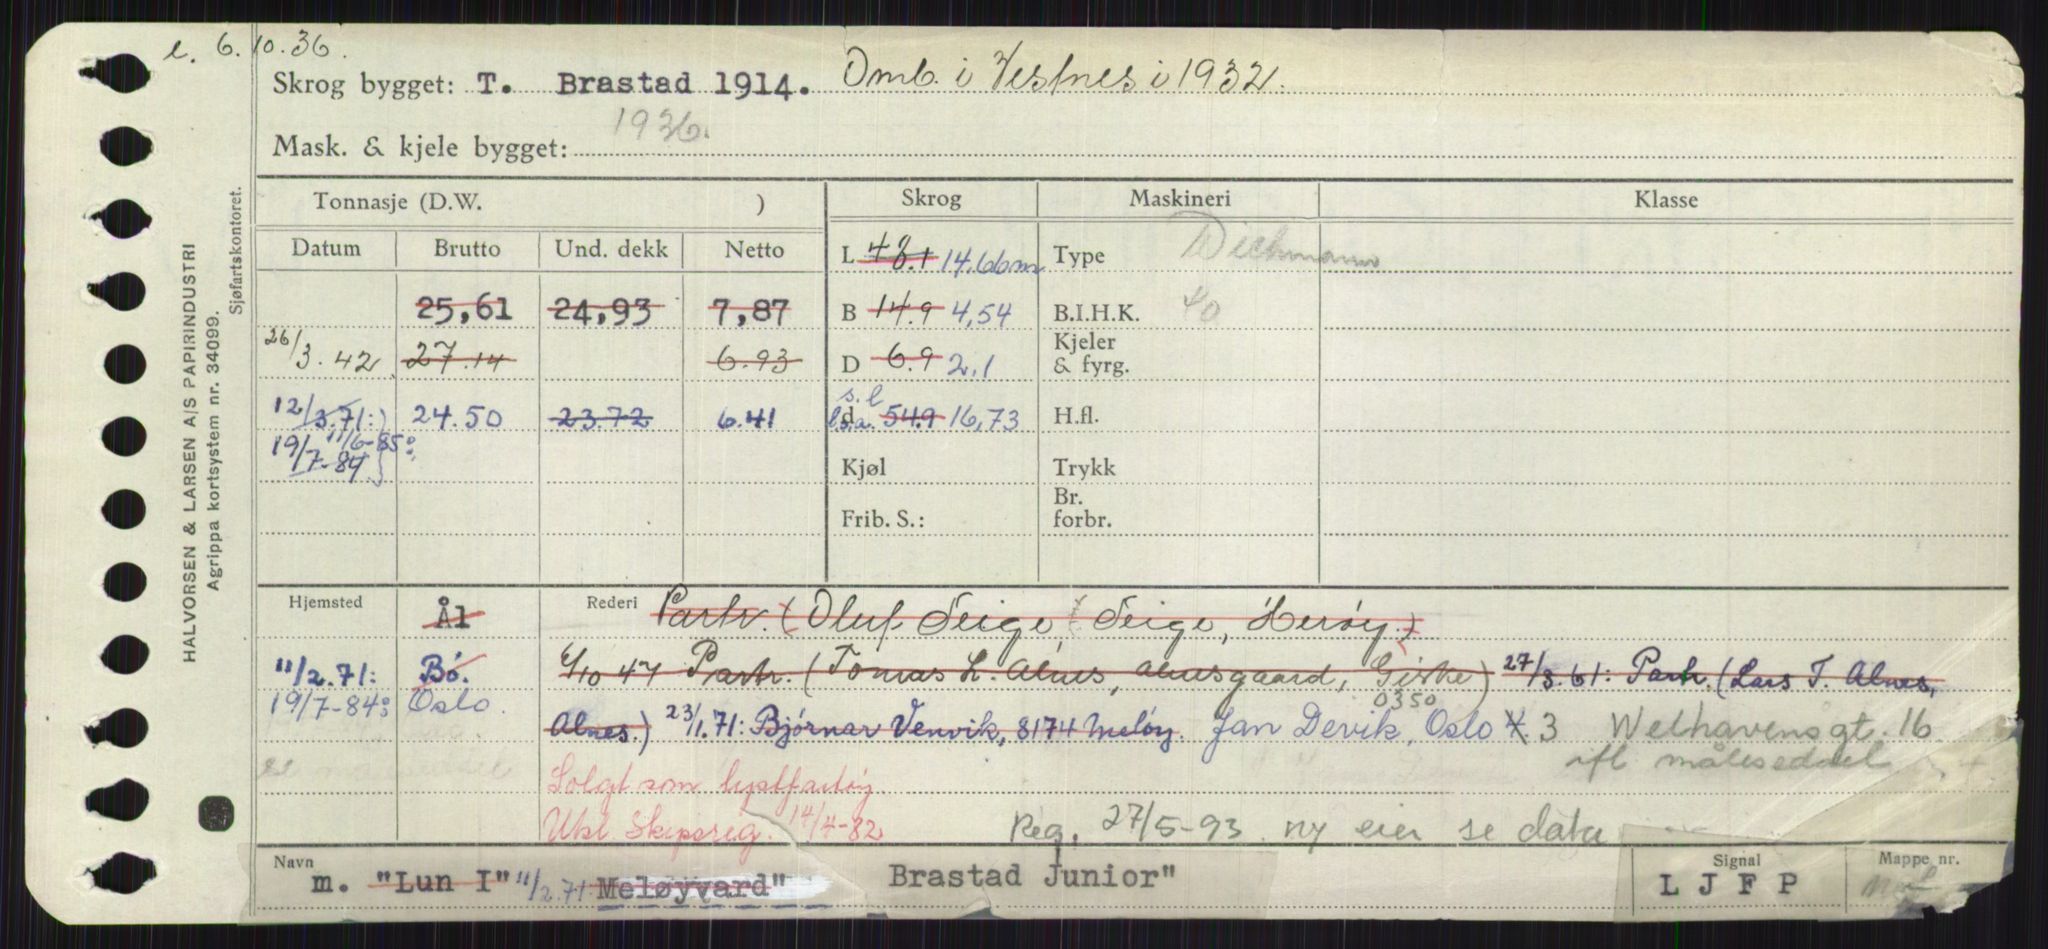 e. 6.10.36.
Skrog bygget: T. Brastad 1914. Omb. i Vesfnes i 1932.
1936.
Mask. & kjele bygget:
Tonnasje (D.W. ) Skrog Maskineri Klasse
Datum Brutto Und. dekk Netto L 48.1 14.66m Type Dickmann
25,61 24,93 7,87 B 14.9 4,54 B.I.H.K. 40
26/3.42. 27.14 6.93 D 6.9 2,1 Kjeler & fyrg.
s.l
12/3.71:) 24.50 23.72 6.41 l.s.a. d 54.9 16,73 H.fl.
11/6-85:
19/7-84 Kjøl Trykk
Frib. S.: Br. forbr.
Hjemsted Ål Rederi Partr. (Oluf Teige, Teige, Herøy.)
11/2.71: Bó. 6/10 47 Partr. (Tomas L. Alnes, Alnesgaard, Giske) 27/3.61: Partr. (Lars T. Alnes,
0350
19/7-84: Oslo. Alnes.) 23/1.71: Bjórnar Venvik, 8174 Melöy. Jan Devik, Oslo 3 Welhavensgt. 16
ifl målesedael
Solgt som lystfartöy.
Utsl. Skipsreg. 14/4-82 Reg. 27/5-93 ny eier se data
Navn m. "Lun I" 11/2.71: Meløyvard" Brastad Junior" Signal L J F P Mappe nr.
HALVORSEN & LARSEN A/S PAPIRINDUSTRI
Agrippa kortsystem nr. 34099.
Sjøfartskontoret.